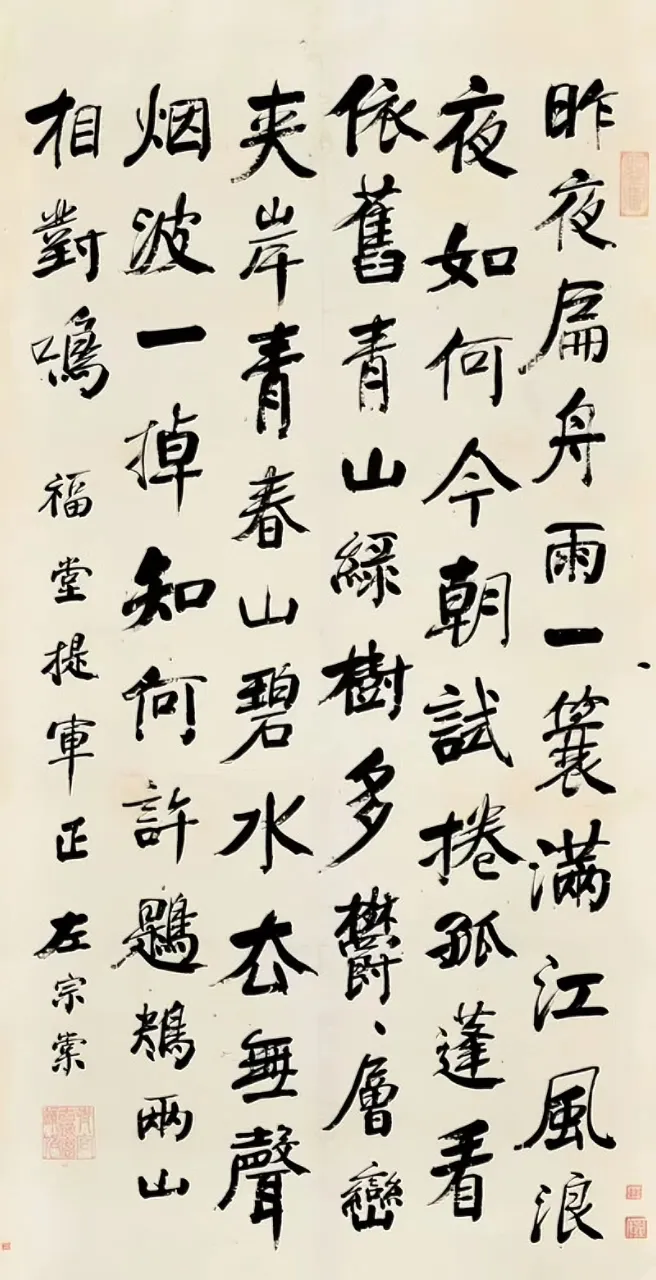 昨夜扁舟雨一簑滿江風浪
夜如何今朝試捲孤蓬看
依舊青山綠樹多鬱、層巒
夾岸青春山碧水去無聲
烟波一掉知何許鶗鴂兩山
相對鳴 福堂提軍正 左宗棠